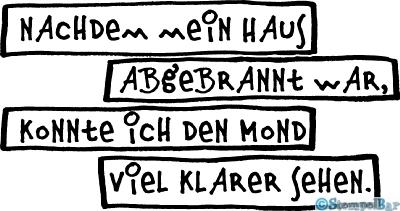 NACHDEM MEIN HAUS
ABGEBRANNT WAR,
KONNTE ICH DEN MOND
VIEL KLARER SEHEN.
©StempelBar